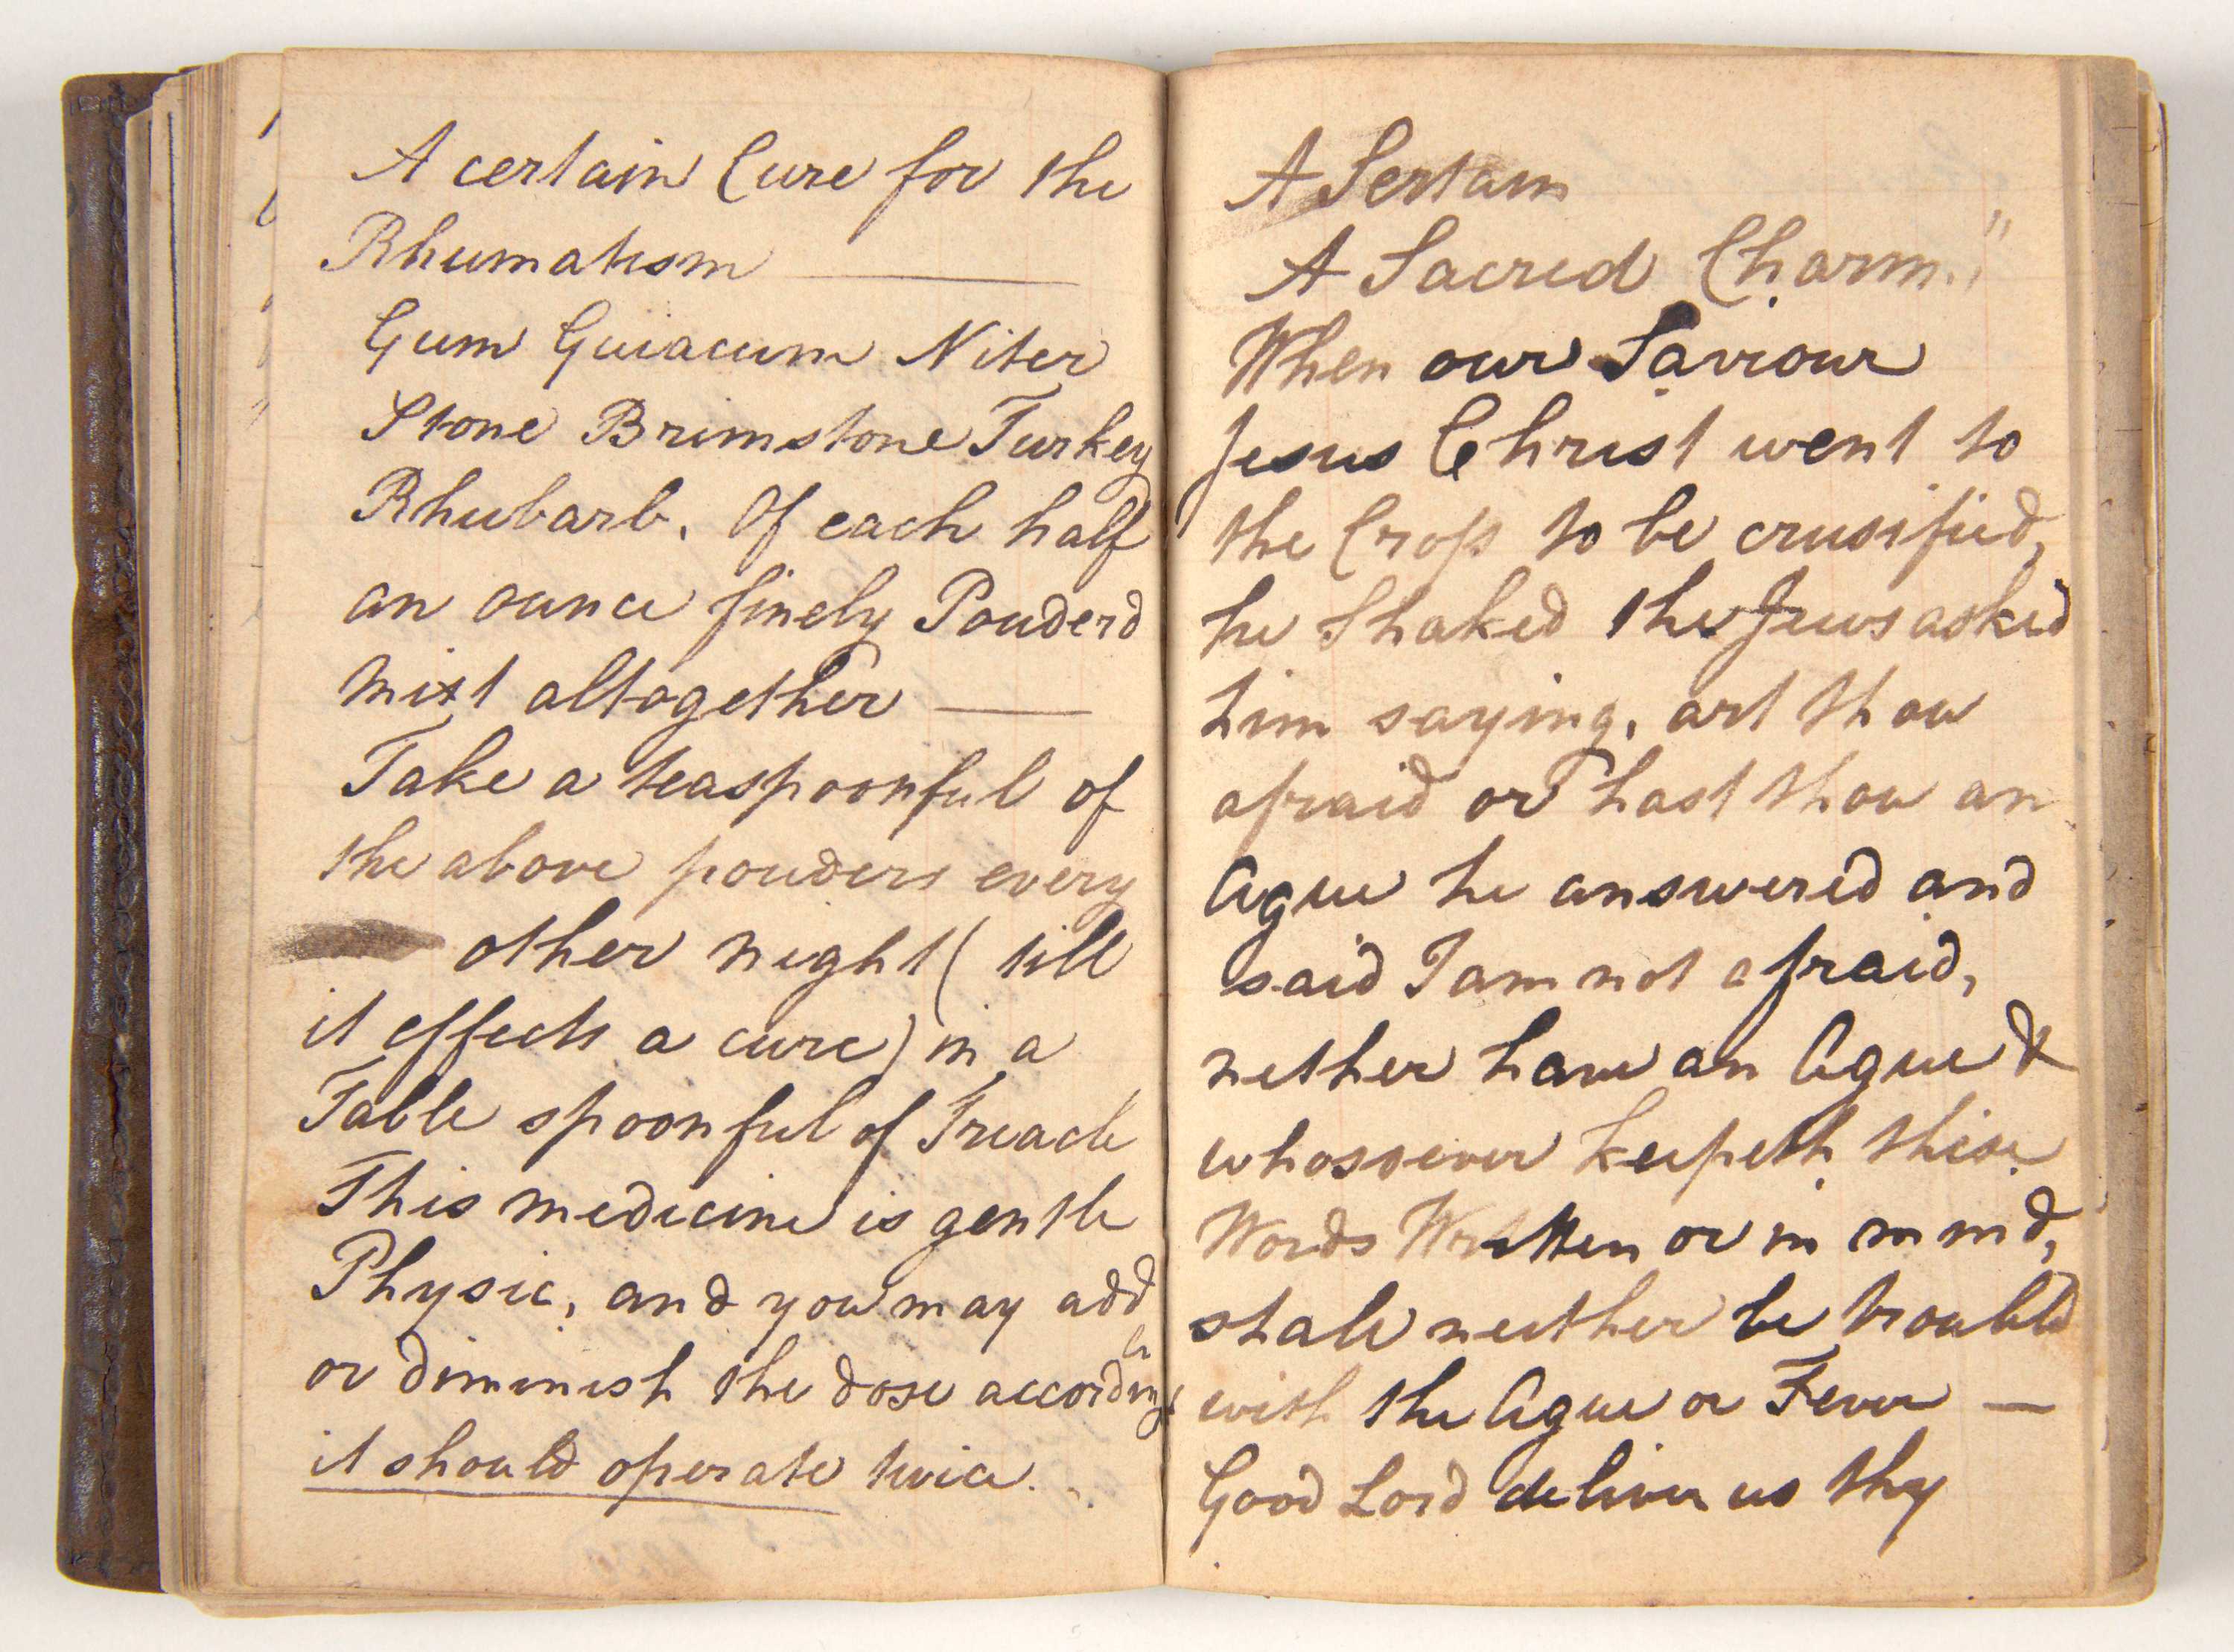 A certain Cure for the
Rhumatism
Gum Guiacum Niter
Stone Brimstone Turkey
Rhubarb. Of each half
an ounce finely Pouderd
mixt altogether
Take a teaspoonful of
the above pouders every
other night ( till
it effects a cure) in a
Table spoonful of Treacle
This medicine is gentle
Physic, and you may add
or diminish the dose according
it should operate twice.
A Sertain
A Sacred Charm."
When our Saviour
Jesus Christ went to
the Cross to be crusified,
he Shaked the Jews asked
him saying, art thou
afraid or hast thou an
Ague he answered and
said I am not afraid,
nether have an Ague &
whosoever keepeth these
Words Written or in mind,
shale neither be troubled
with the Ague or Fever —
Good Lord deliver us thy